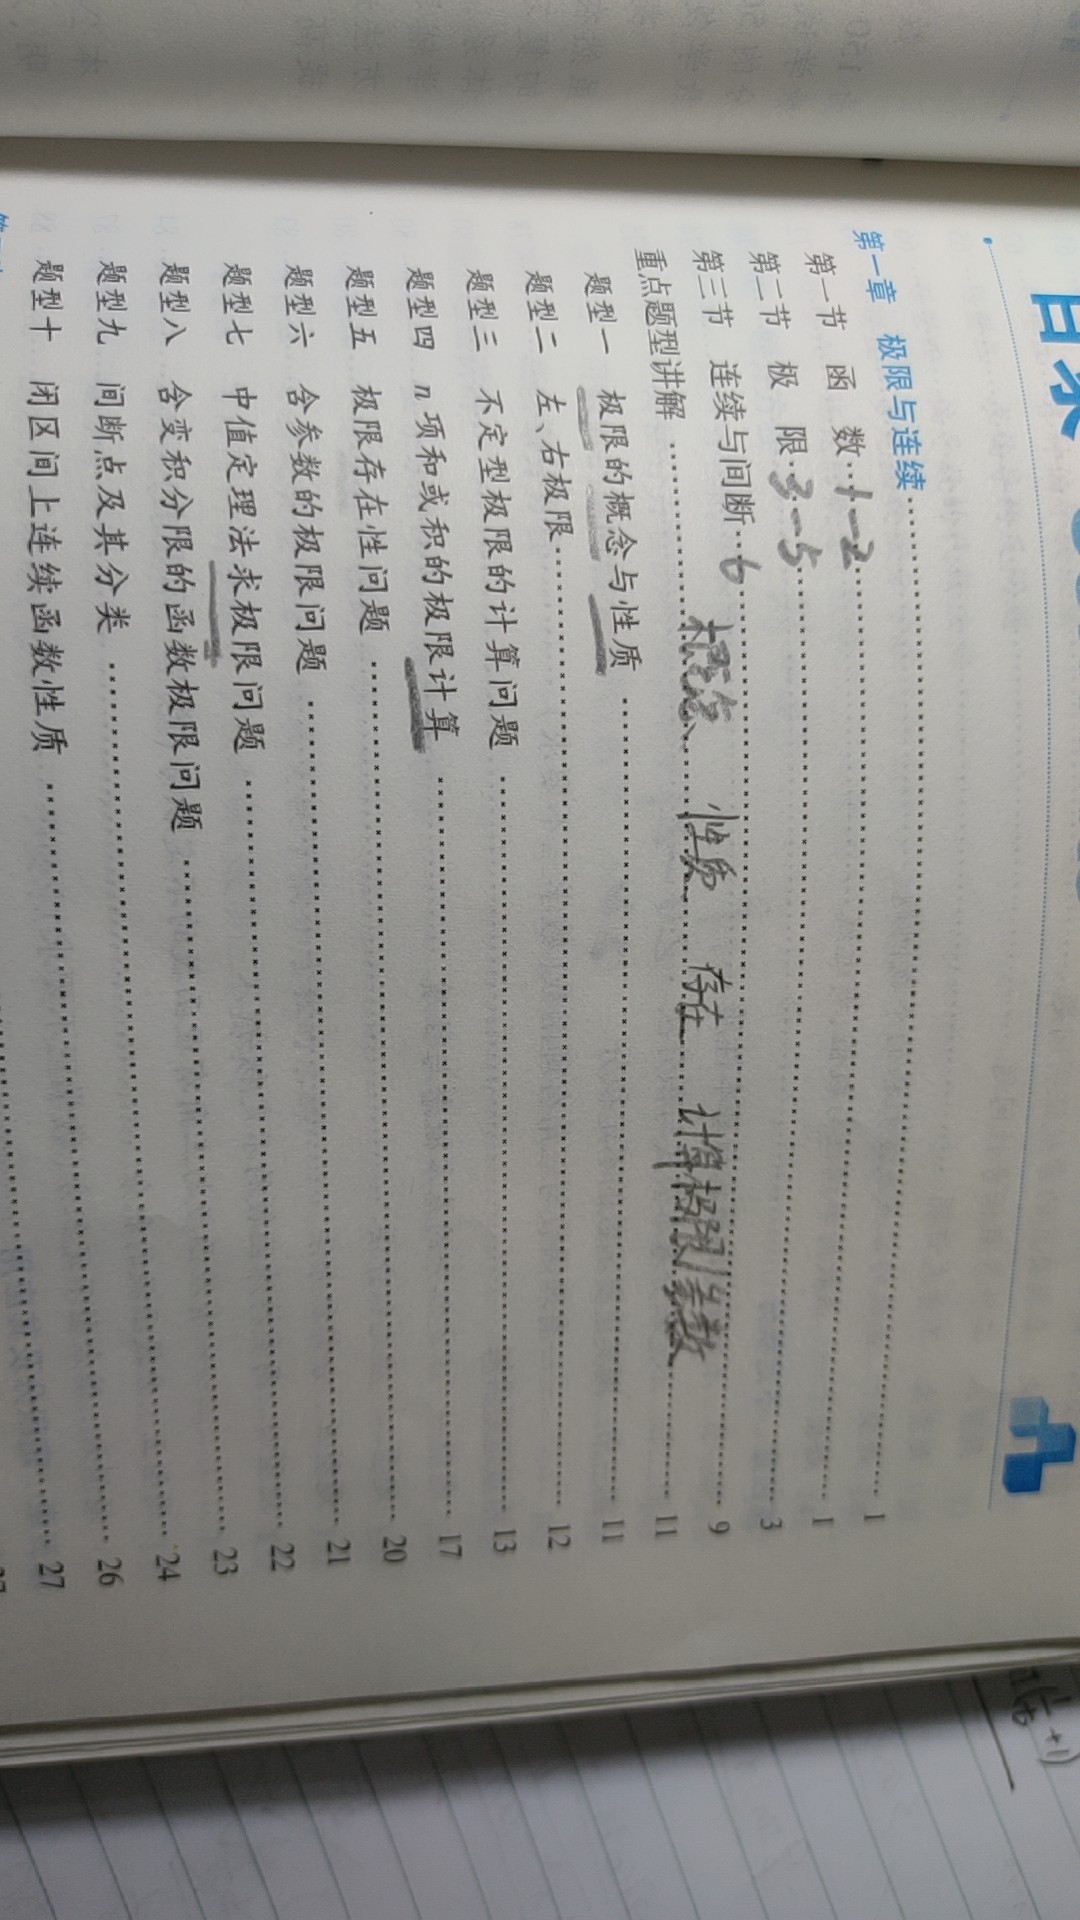 目录
第一章 极限与连续 1
第一节 函 数 1-2 1
第二节 极 限 3-5 3
第三节 连续与间断 6 9
重点题型讲解 概念、性质 存在 计算极限/参数 11
题型一 极限的概念与性质 11
题型二 左、右极限 12
题型三 不定型极限的计算问题 13
题型四 n 项和或积的极限计算 17
题型五 极限存在性问题 20
题型六 含参数的极限问题 21
题型七 中值定理法求极限问题 22
题型八 含变积分限的函数极限问题 23
题型九 间断点及其分类 24
题型十 闭区间上连续函数性质 26
27